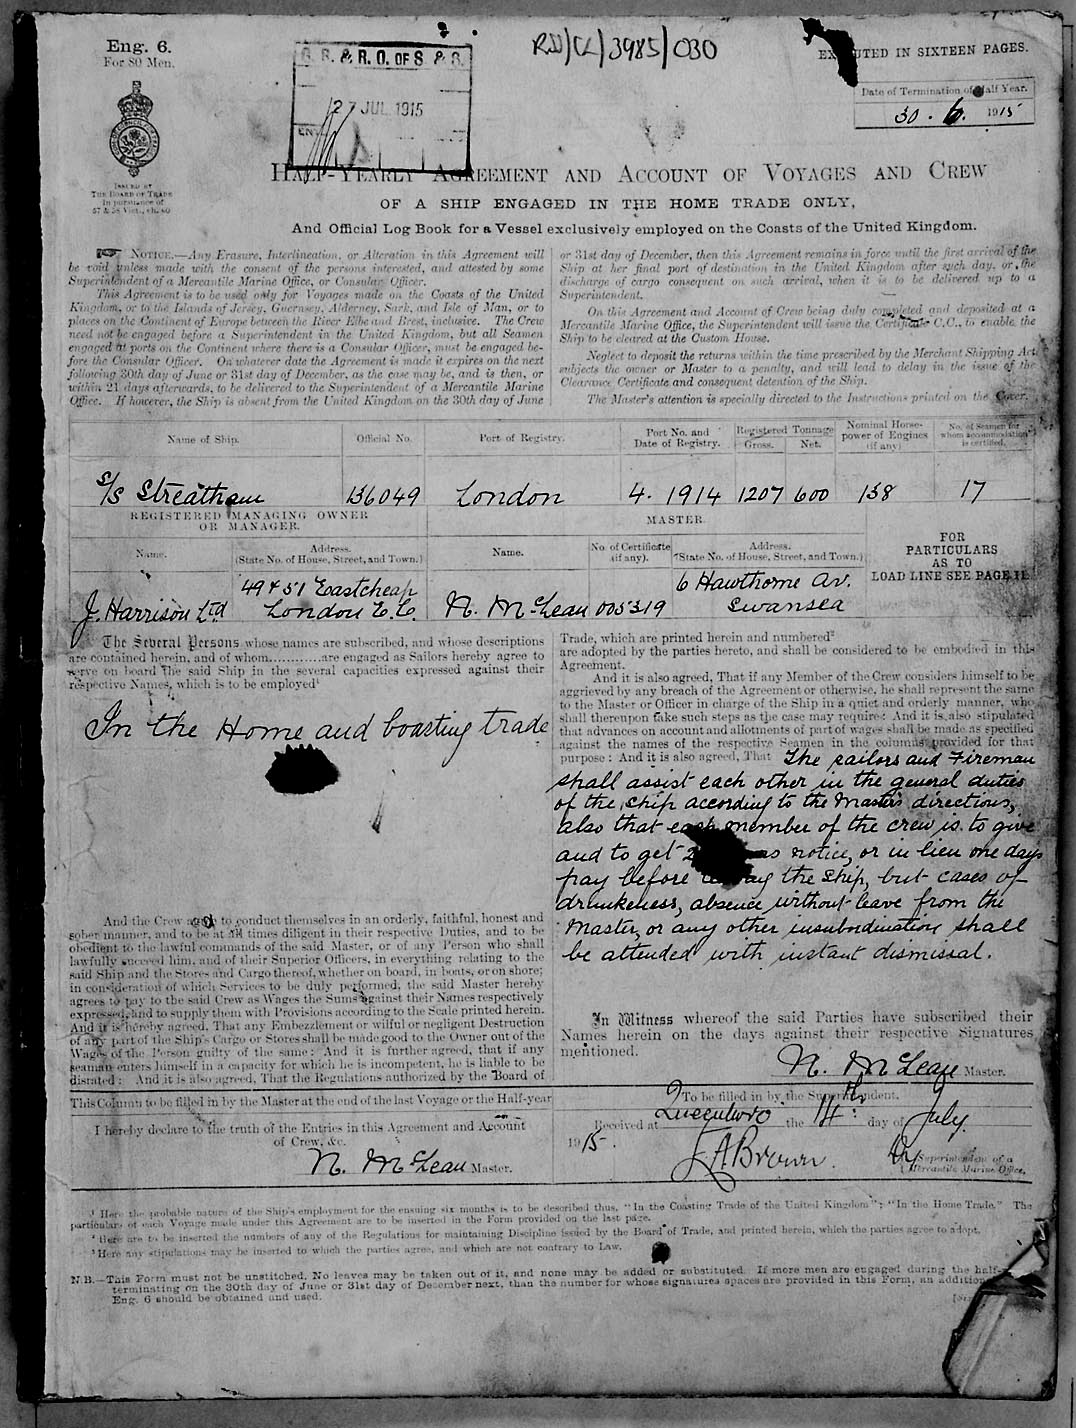 Eng. 6.
For 80 Men.
G. R. & R. O. OF S. & S.
27 JUL 1915
RSS/CL/3985/030
EXECUTED IN SIXTEEN PAGES.
Date of Termination of Half Year.
30. 6. 1915
ISSUED BY
THE BOARD OF TRADE
In pursuance of
57 & 58 Vict., ch. 60
HALF-YEARLY AGREEMENT AND ACCOUNT OF VOYAGES AND CREW
OF A SHIP ENGAGED IN THE HOME TRADE ONLY,
And Official Log Book for a Vessel exclusively employed on the Coasts of the United Kingdom.
NOTICE.—Any Erasure, Interlineation, or Alteration in this Agreement will
be void unless made with the consent of the persons interested, and attested by some
Superintendent of a Mercantile Marine Office, or Consular Officer.
This Agreement is to be used only for Voyages made on the Coasts of the United
Kingdom, or to the Islands of Jersey, Guernsey, Alderney, Sark, and Isle of Man, or to
places on the Continent of Europe between the River Elbe and Brest, inclusive. The Crew
need not be engaged before a Superintendent in the United Kingdom, but all Seamen
engaged at ports on the Continent where there is a Consular Officer, must be engaged be-
fore the Consular Officer. On whatever date the Agreement is made it expires on the next
following 30th day of June or 31st day of December, as the case may be, and is then, or
within 21 days afterwards, to be delivered to the Superintendent of a Mercantile Marine
Office. If however, the Ship is absent from the United Kingdom on the 30th day of June
or 31st day of December, then this Agreement remains in force until the first arrival of the
Ship at her final port of destination in the United Kingdom after such day, or the
discharge of cargo consequent on such arrival, when it is to be delivered up to a
Superintendent.
On this Agreement and Account of Crew being duly completed and deposited at a
Mercantile Marine Office, the Superintendent will issue the Certificate C.C., to enable the
Ship to be cleared at the Custom House.
Neglect to deposit the returns within the time prescribed by the Merchant Shipping Act
subjects the owner or Master to a penalty, and will lead to delay in the issue of the
Clearance Certificate and consequent detention of the Ship.
The Master's attention is specially directed to the Instructions printed on the Cover.
Name of Ship. Official No. Port of Registry. Port No. and Date of Registry. Registered Tonnage Gross. Net. Nominal Horse-power of Engines (if any) No. of Seamen for whom accommodation is certified.
S/S Streatham 136049 London 4. 1914 1207 600 158 17
REGISTERED MANAGING OWNER OR MANAGER. MASTER.
Name. Address. (State No. of House, Street, and Town.) Name. No. of Certificate (if any). Address. (State No. of House, Street, and Town.)
FOR PARTICULARS AS TO LOAD LINE SEE PAGE 11.
J. Harrison Ltd. 49 & 51 Eastcheap London E.C. N. McLean 005319 6 Hawthorne Av. Swansea
The Several Persons whose names are subscribed, and whose descriptions
are contained herein, and of whom............are engaged as Sailors hereby agree to
serve on board the said Ship in the several capacities expressed against their
respective Names, which is to be employed¹
In the Home and Coasting trade
And the Crew agree to conduct themselves in an orderly, faithful, honest and
sober manner, and to be at all times diligent in their respective Duties, and to be
obedient to the lawful commands of the said Master, or of any Person who shall
lawfully succeed him, and of their Superior Officers, in everything relating to the
said Ship and the Stores and Cargo thereof, whether on board, in boats, or on shore;
in consideration of which Services to be duly performed, the said Master hereby
agrees to pay to the said Crew as Wages the Sums against their Names respectively
expressed, and to supply them with Provisions according to the Scale printed herein.
And it is hereby agreed, That any Embezzlement or wilful or negligent Destruction
of any part of the Ship's Cargo or Stores shall be made good to the Owner out of the
Wages of the Person guilty of the same: And it is further agreed, that if any
seaman enters himself in a capacity for which he is incompetent, he is liable to be
disrated: And it is also agreed, That the Regulations authorized by the Board of
Trade, which are printed herein and numbered²
are adopted by the parties hereto, and shall be considered to be embodied in this
Agreement.
And it is also agreed, That if any Member of the Crew considers himself to be
aggrieved by any breach of the Agreement or otherwise, he shall represent the same
to the Master or Officer in charge of the Ship in a quiet and orderly manner, who
shall thereupon take such steps as the case may require: And it is also stipulated
that advances on account and allotments of part of wages shall be made as specified
against the names of the respective Seamen in the columns provided for that
purpose: And it is also agreed, That The sailors and Fireman
shall assist each other in the general duties
of the ship according to the Masters directions,
also that each member of the crew is to give
and to get notice, or in lieu one days
pay before the ship, but cases of
drunkeness, absence without leave from the
Master, or any other insubordination shall
be attended with instant dismissal.
In Witness whereof the said Parties have subscribed their
Names herein on the days against their respective Signatures
mentioned.
N. McLean Master.
This Column to be filled in by the Master at the end of the last Voyage or the Half-year
I hereby declare to the truth of the Entries in this Agreement and Account
of Crew, &c.
N. McLean Master.
To be filled in by the Superintendent.
Received at Queenboro the 14th day of July.
1915.
A Brown. Dy Superintendent of a Mercantile Marine Office.
¹ Here the probable nature of the Ship's employment for the ensuing six months is to be described thus, "In the Coasting Trade of the United Kingdom"; "In the Home Trade." The
particulars of each Voyage made under this Agreement are to be inserted in the Form provided on the last page.
² Here are to be inserted the numbers of any of the Regulations for maintaining Discipline issued by the Board of Trade, and printed herein, which the parties agree to adopt.
³ Here any stipulations may be inserted to which the parties agree, and which are not contrary to Law.
N.B.—This Form must not be unstitched. No leaves may be taken out of it, and none may be added or substituted. If more men are engaged during the half-
terminating on the 30th day of June or 31st day of December next, than the number for whose signatures spaces are provided in this Form, an addition
Eng. 6 should be obtained and used.